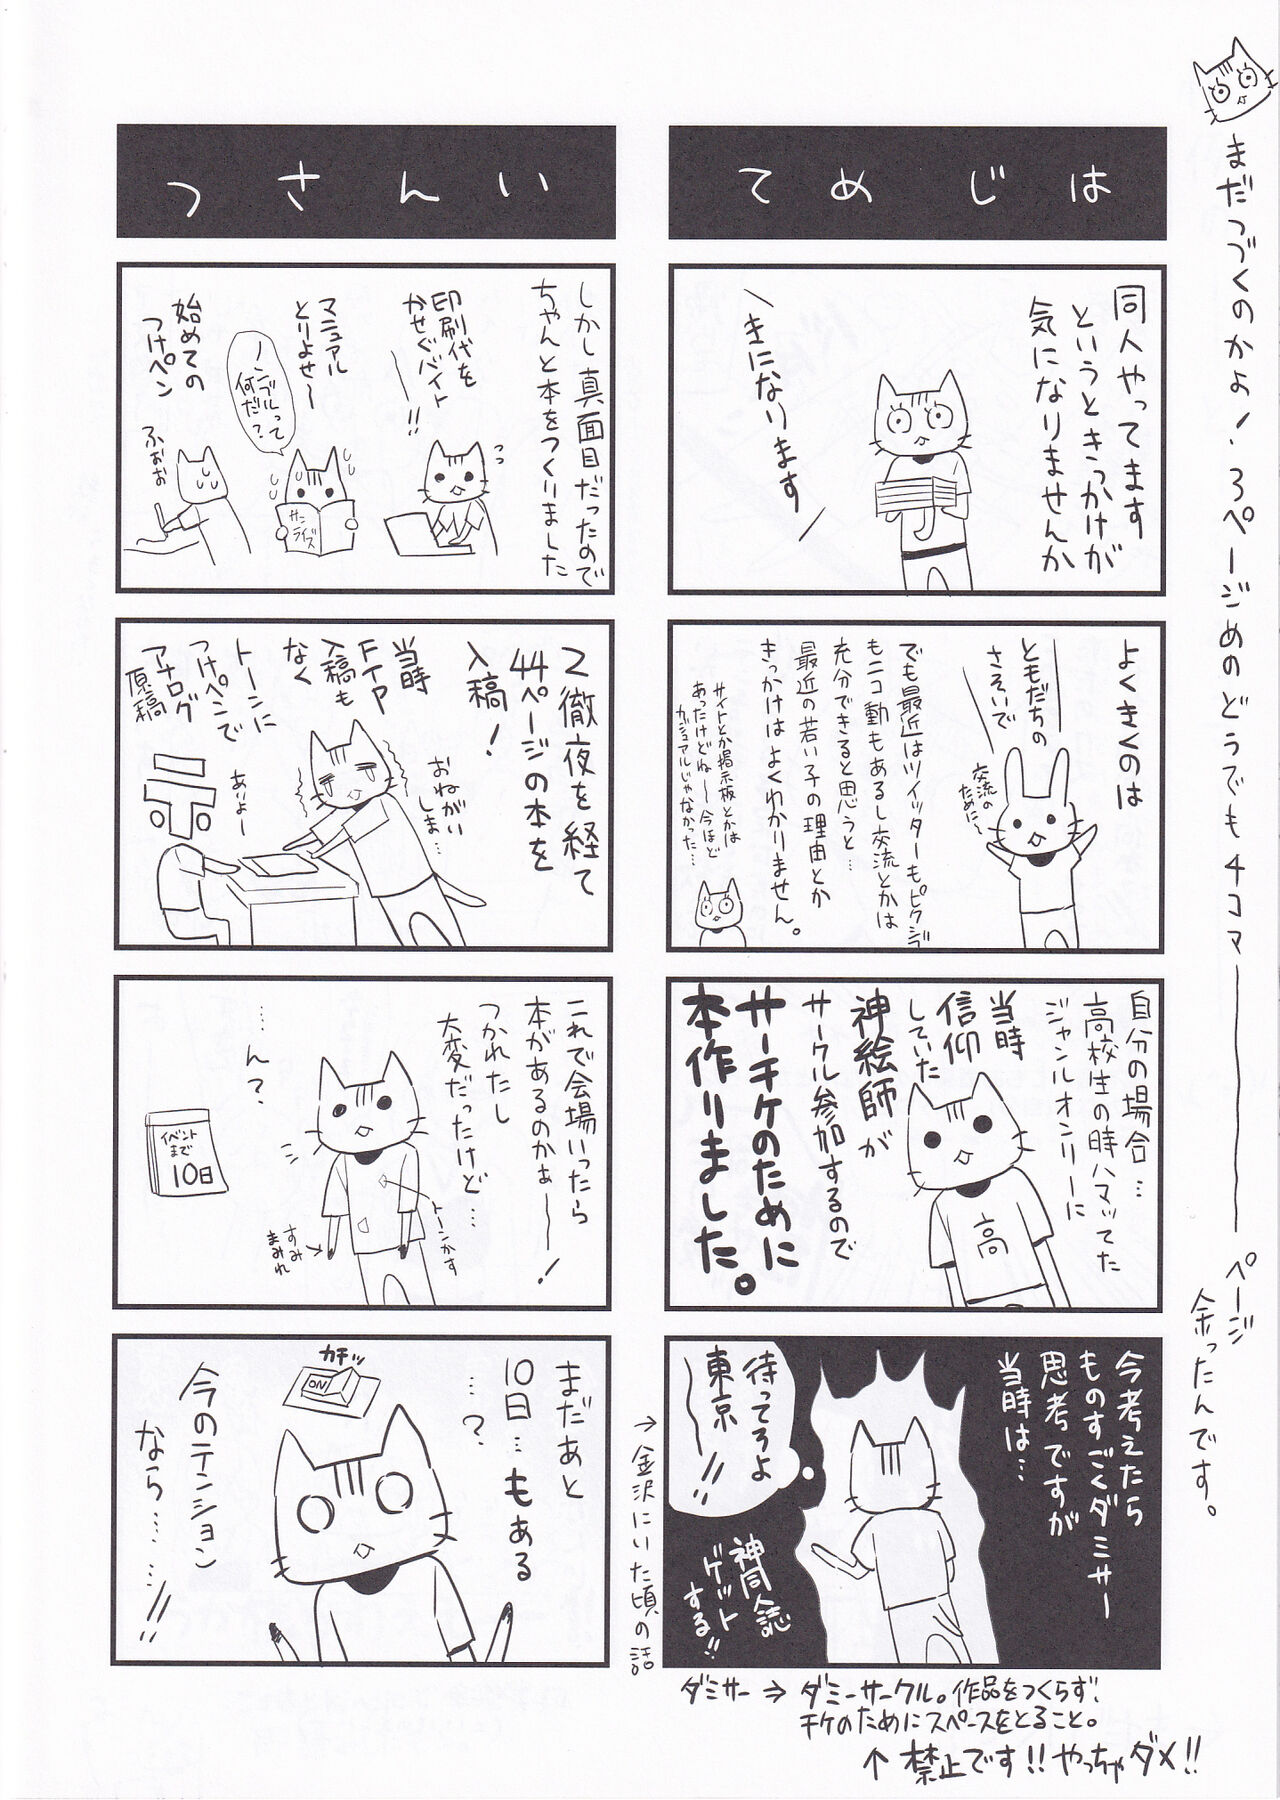 まだつづくのかよ！3ページめのどうでも4コマ――
ページ
余ったんです。
はじめて
同人やってます
というときっかけが
気になりませんか
＼きになります／
よくきくのは
ともだちの
さそいで
交流の
ために〜
でも最近はツイッターもピクシブ
もニコ動もあるし交流とかは
充分できると思うと…
最近の若い子の理由とか
きっかけはよくわかりません。
サイトとか掲示板とかは
あったけどね――今ほど
カジュアルじゃなかった…
自分の場合…
高校生の時ハマッてた
ジャンルオンリーに
当時
信仰
していた
神絵師が
サークル参加するので
サーチケのために
本作りました。
高
今考えたら
ものすごくダミサー
思考ですが
当時は…
待ってろよ
東京――!!
神同人誌
ゲット
する!!
→金沢にいた頃の話
ダミサー ⇒ ダミーサークル。作品をつくらず、
チケのためにスペースをとること。
↑ 禁止です!! やっちゃダメ!!
いんさつ
しかし真面目だったので
ちゃんと本をつくりました
印刷代を
かせぐバイト
――!!
マニュアル
とりよせ〜
ノンブルって
何だ？
サン
ライズ
始めての
つけペン
ふぉぉ
2徹夜を経て
44ページの本を
入稿！
当時
FTP
入稿も
なく
トーンに
つけペンで
アナログ
原稿
おねがい
しま…
ありよー
これで会場いったら
本があるのかぁ――！
つかれたし
大変だったけど…
トーンかす
すみ
まみれ
…ん？
イベント
まで
10日
まだあと
10日…もある
…？
カチッ
ON
今のテンション
なら……!!